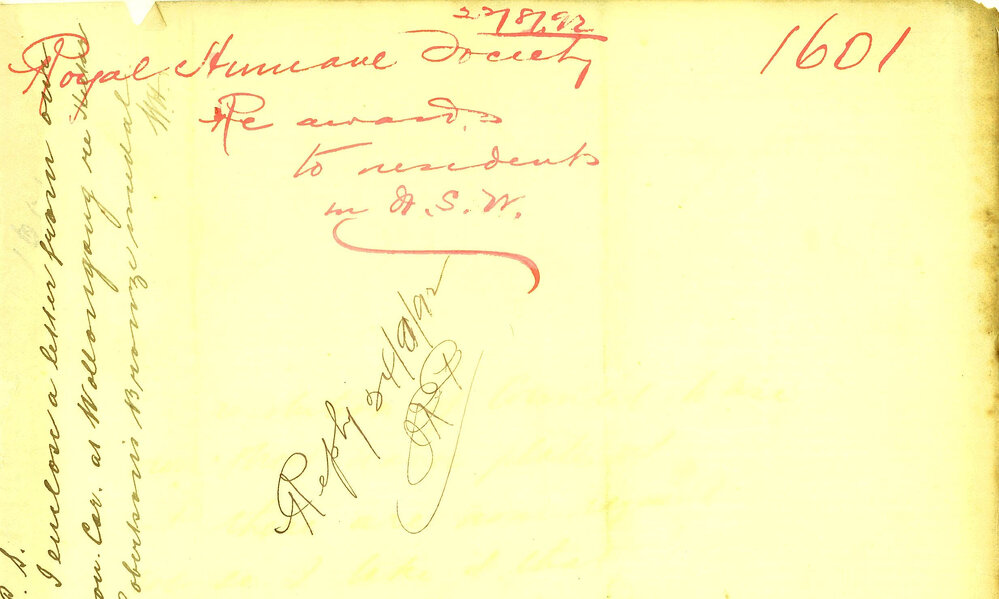 22/8/92
1601
Royal Humane Society
Re awards
to residents
in N.S.W.
Reply 24/8/92
P.S.
I enclose a letter from our
Hon. Cor. at Wollongong re Helen
Robertson's Bronze medal